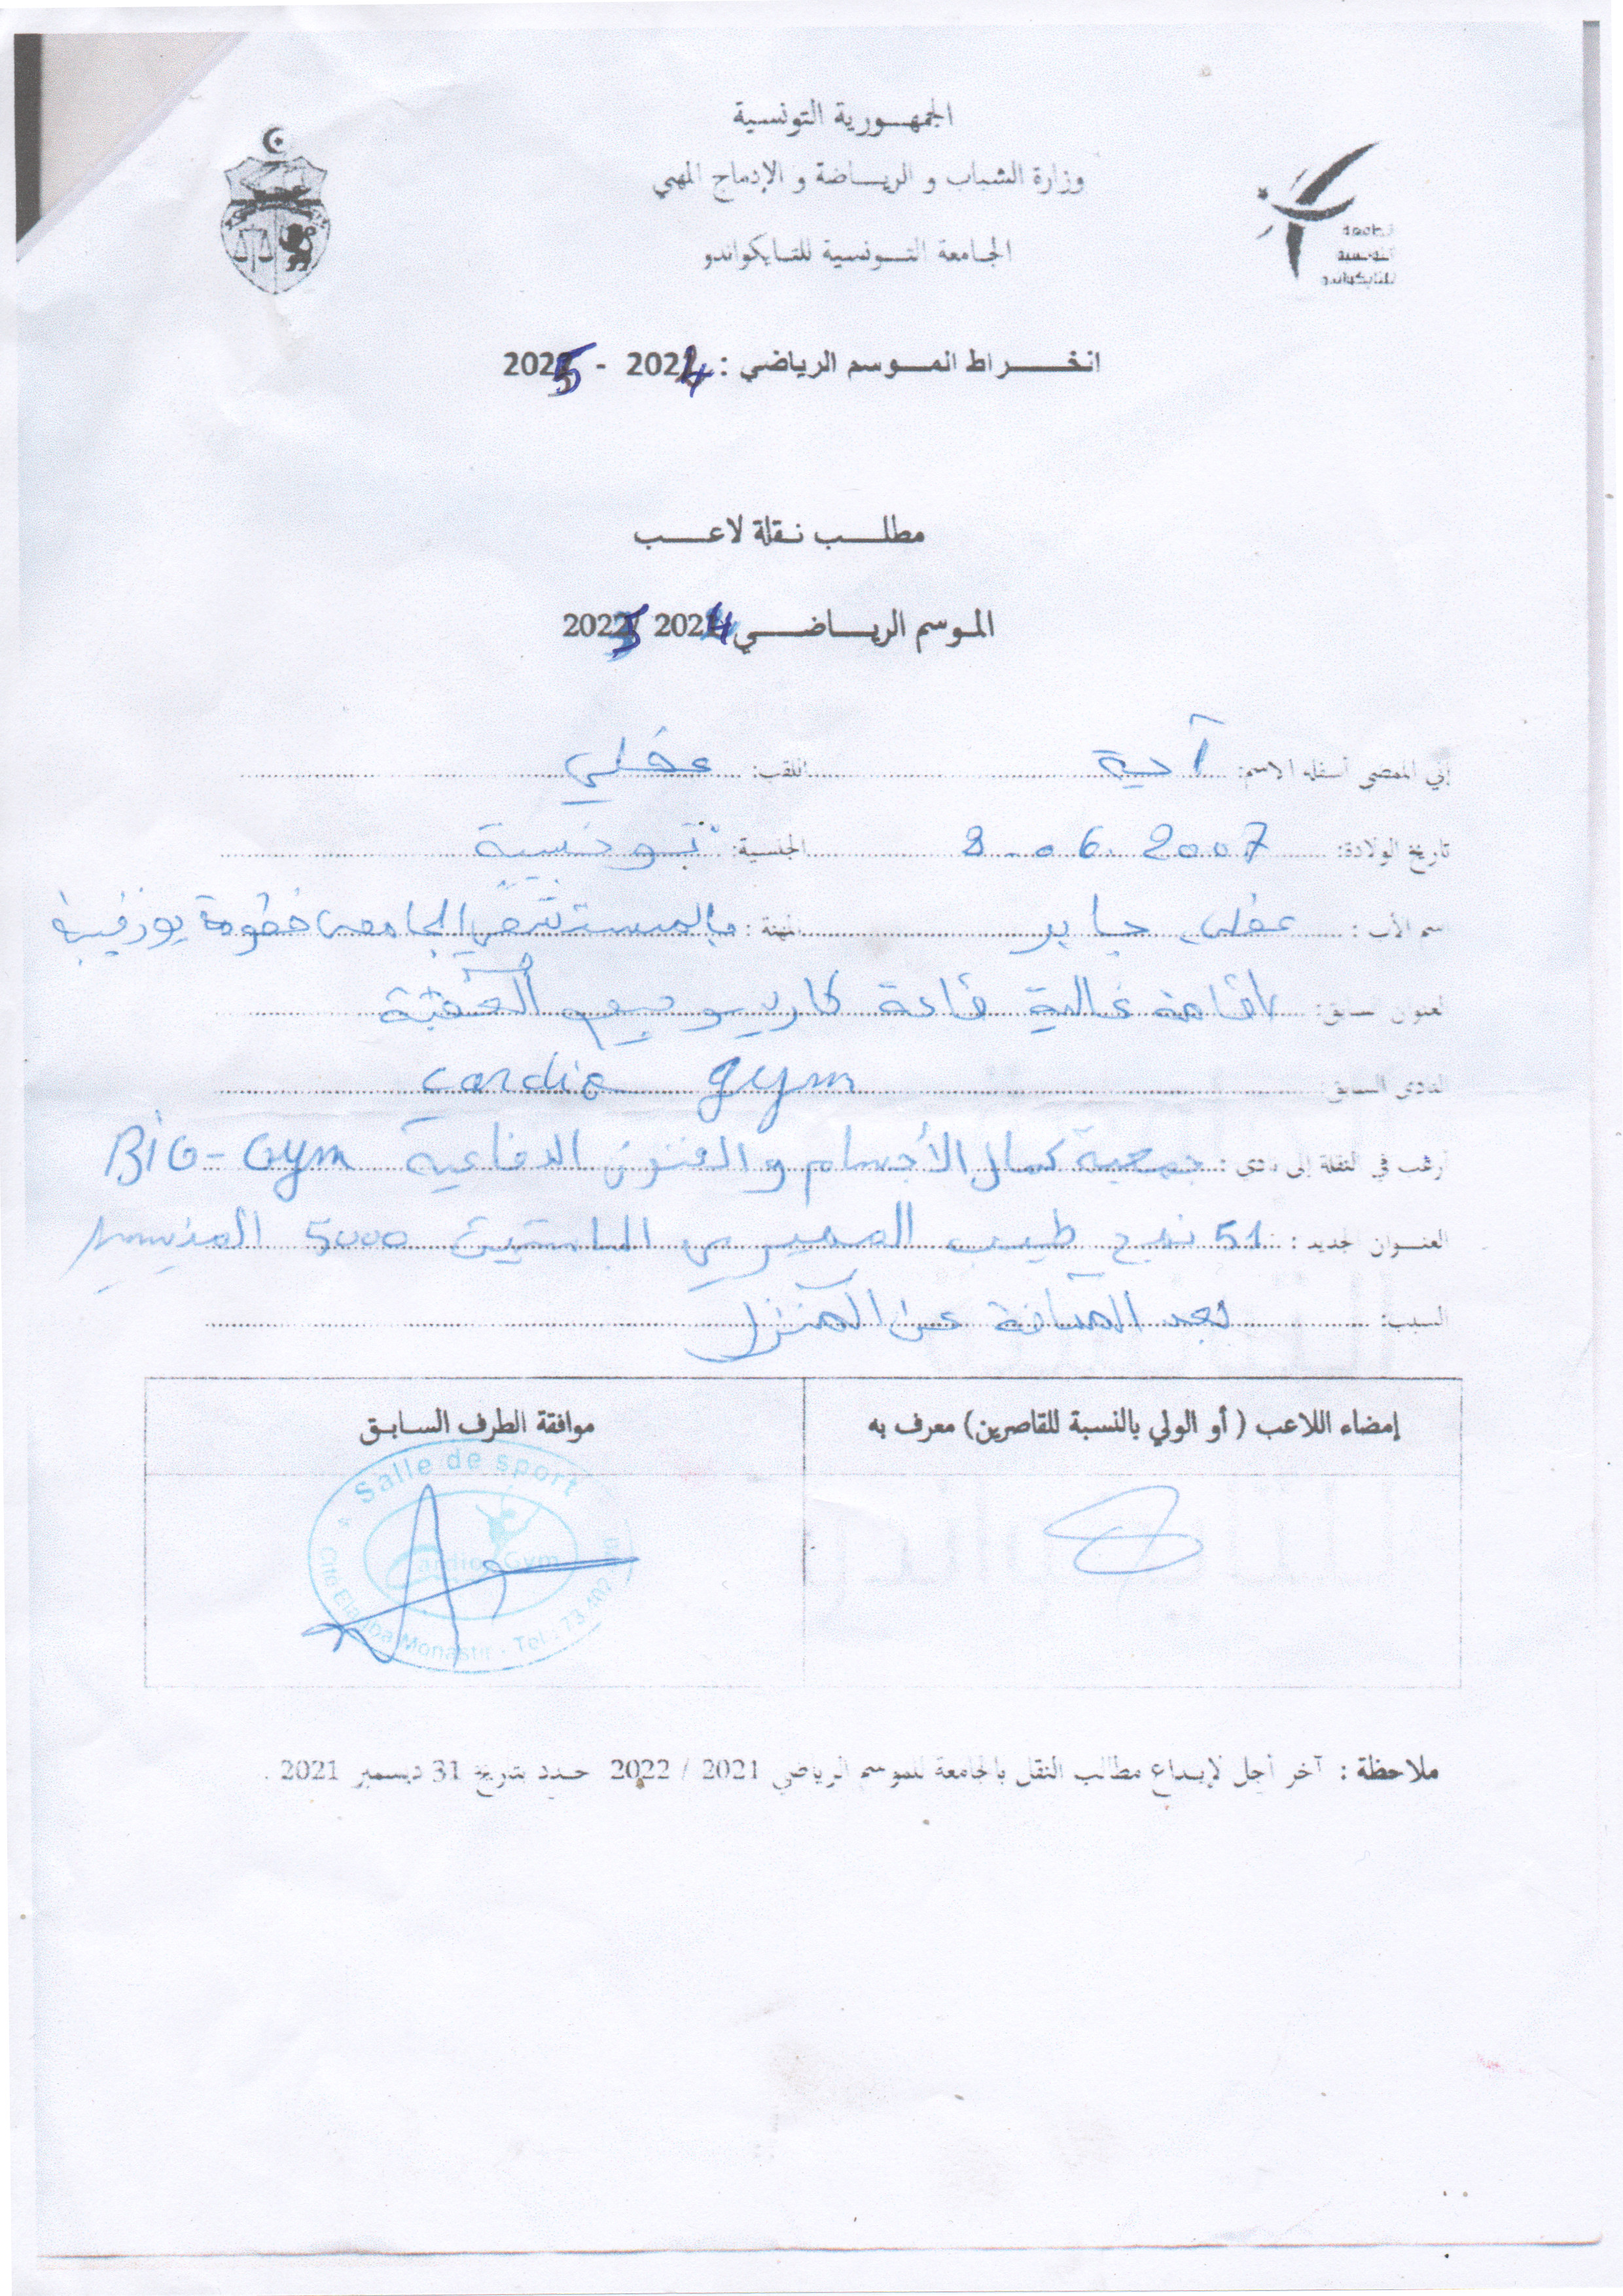 الجمهورية التونسية
وزارة الشباب و الرياضة و الإدماج المهني
الجامعة التونسية للتايكواندو
الجامعة
التونسية
للتايكواندو
انخراط الموسم الرياضي : 2024 - 2025
مطلب نقلة لاعب
الموسم الرياضي 2024 2025
إني الممضي أسفله الاسم: آية اللقب: عقلي
تاريخ الولادة: 8.06.2007 الجنسية: تونسية
اسم الأب : عقلي جابر المهنة : بالمستشفى الجامعي فطومة بورقيبة
العنوان السابق: إقامة غالية قاعة كارديو جيم العقبة
النادي السابق: cardio gym
أرغب في النقلة إلى نادي : جمعية كمال الأجسام والفنون الدفاعية BiG-Gym
العنوان الجديد : 51 نهج طبيب المميري 5000 المنستير
السبب: بعد المسافة عن المنزل
إمضاء اللاعب ( أو الولي بالنسبة للقاصرين) معرف به
موافقة الطرف السابق
Salle de sport
Cardio Gym
Cité Elagba Monastir - Tel : 73 402
ملاحظة : آخر أجل لإيداع مطالب النقل بالجامعة للموسم الرياضي 2021 / 2022 حدد بتاريخ 31 ديسمبر 2021 .